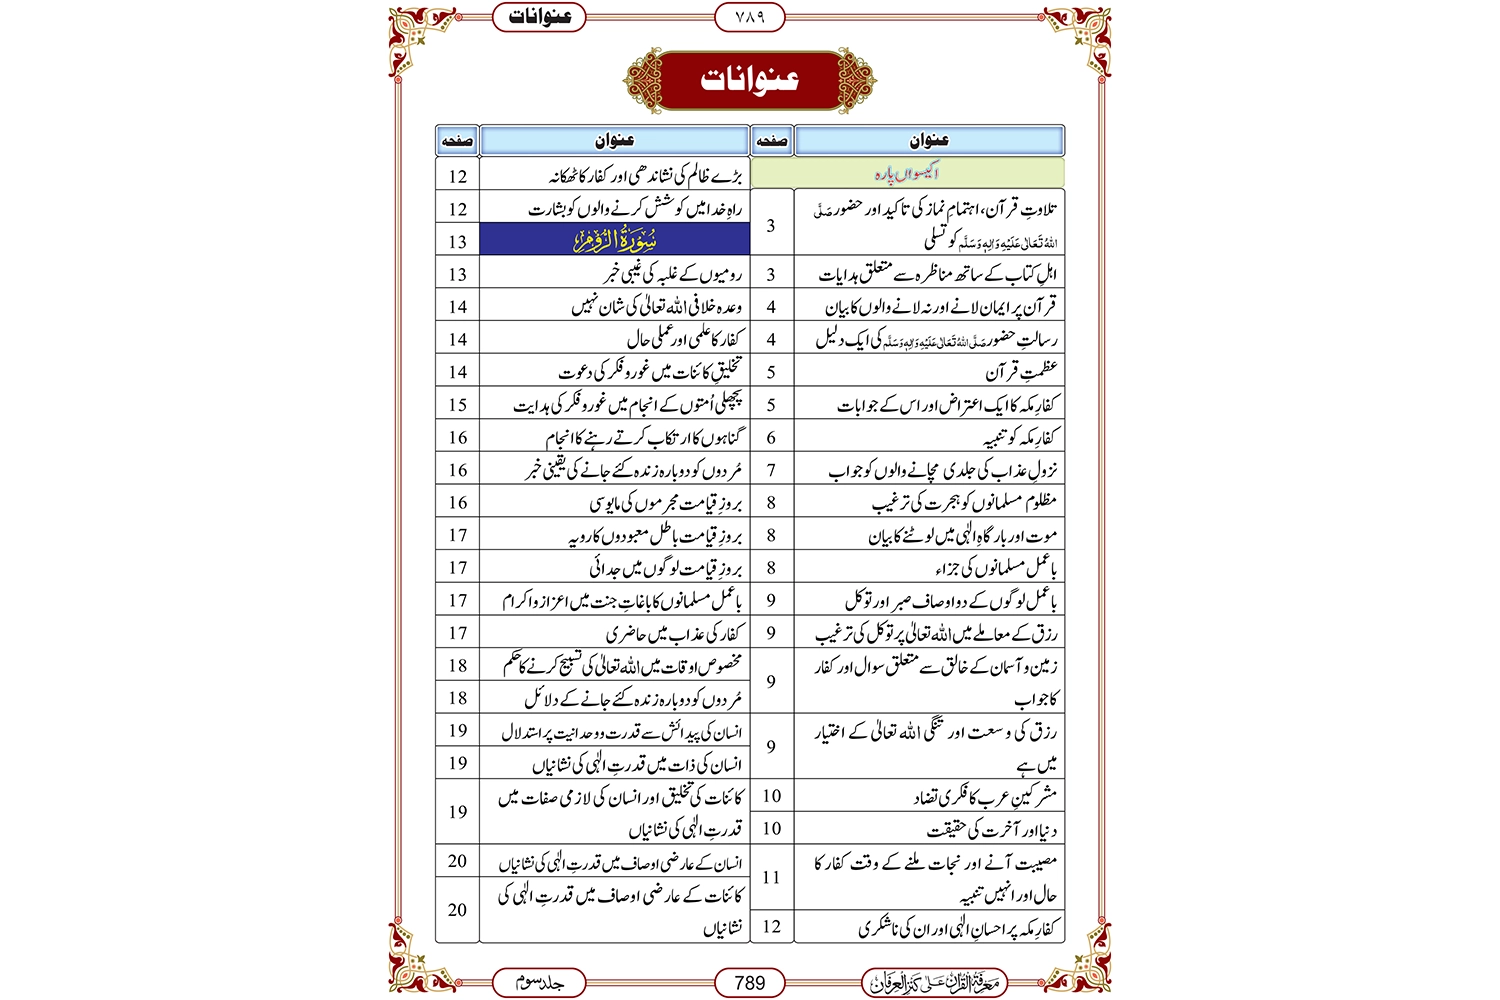 عنوانات
۷۸۹
عنوانات
عنوان
صفحہ
عنوان
صفحہ
اکیسواں پارہ
تلاوتِ قرآن، اہتمامِ نماز کی تاکید اور حضور صَلَّی
اللہُ تَعَالٰی عَلَیْہِ وَاٰلِہٖ وَسَلَّم کو تسلی
3
اہلِ کتاب کے ساتھ مناظرہ سے متعلق ہدایات
3
قرآن پر ایمان لانے اور نہ لانے والوں کا بیان
4
رسالتِ حضور صَلَّی اللہُ تَعَالٰی عَلَیْہِ وَاٰلِہٖ وَسَلَّم کی ایک دلیل
4
عظمتِ قرآن
5
کفارِ مکہ کا ایک اعتراض اور اس کے جوابات
5
کفارِ مکہ کو تنبیہ
6
نزولِ عذاب کی جلدی مچانے والوں کو جواب
7
مظلوم مسلمانوں کو ہجرت کی ترغیب
8
موت اور بارگاہِ الٰہی میں لوٹنے کا بیان
8
باعمل مسلمانوں کی جزاء
8
باعمل لوگوں کے دو اوصاف صبر اور توکل
9
رزق کے معاملے میں اللہ تعالیٰ پر توکل کی ترغیب
9
زمین و آسمان کے خالق سے متعلق سوال اور کفار
کا جواب
9
رزق کی وسعت اور تنگی اللہ تعالیٰ کے اختیار
میں ہے
9
مشرکینِ عرب کا فکری تضاد
10
دنیا اور آخرت کی حقیقت
10
مصیبت آنے اور نجات ملنے کے وقت کفار کا
حال اور انہیں تنبیہ
11
کفارِ مکہ پر احسانِ الٰہی اور ان کی ناشکری
12
بڑے ظالم کی نشاندھی اور کفار کا ٹھکانہ
12
راہِ خدا میں کوشش کرنے والوں کو بشارت
12
سُوْرَۃُ الرُّوْم
13
رومیوں کے غلبہ کی غیبی خبر
13
وعدہ خلافی اللہ تعالیٰ کی شان نہیں
14
کفار کا علمی اور عملی حال
14
تخلیقِ کائنات میں غور و فکر کی دعوت
14
پچھلی اُمتوں کے انجام میں غور و فکر کی ہدایت
15
گناہوں کا ارتکاب کرتے رہنے کا انجام
16
مُردوں کو دوبارہ زندہ کئے جانے کی یقینی خبر
16
بروزِ قیامت مجرموں کی مایوسی
16
بروزِ قیامت باطل معبودوں کا رویہ
17
بروزِ قیامت لوگوں میں جدائی
17
باعمل مسلمانوں کا باغاتِ جنت میں اعزاز و اکرام
17
کفار کی عذاب میں حاضری
17
مخصوص اوقات میں اللہ تعالیٰ کی تسبیح کرنے کا حکم
18
مُردوں کو دوبارہ زندہ کئے جانے کے دلائل
18
انسان کی پیدائش سے قدرت و وحدانیت پر استدلال
19
انسان کی ذات میں قدرتِ الٰہی کی نشانیاں
19
کائنات کی تخلیق اور انسان کی لازمی صفات میں
قدرتِ الٰہی کی نشانیاں
19
انسان کے عارضی اوصاف میں قدرتِ الٰہی کی نشانیاں
20
کائنات کے عارضی اوصاف میں قدرتِ الٰہی کی
نشانیاں
20
معرفۃ القرآن علی کنز العرفان
789
جلد سوم